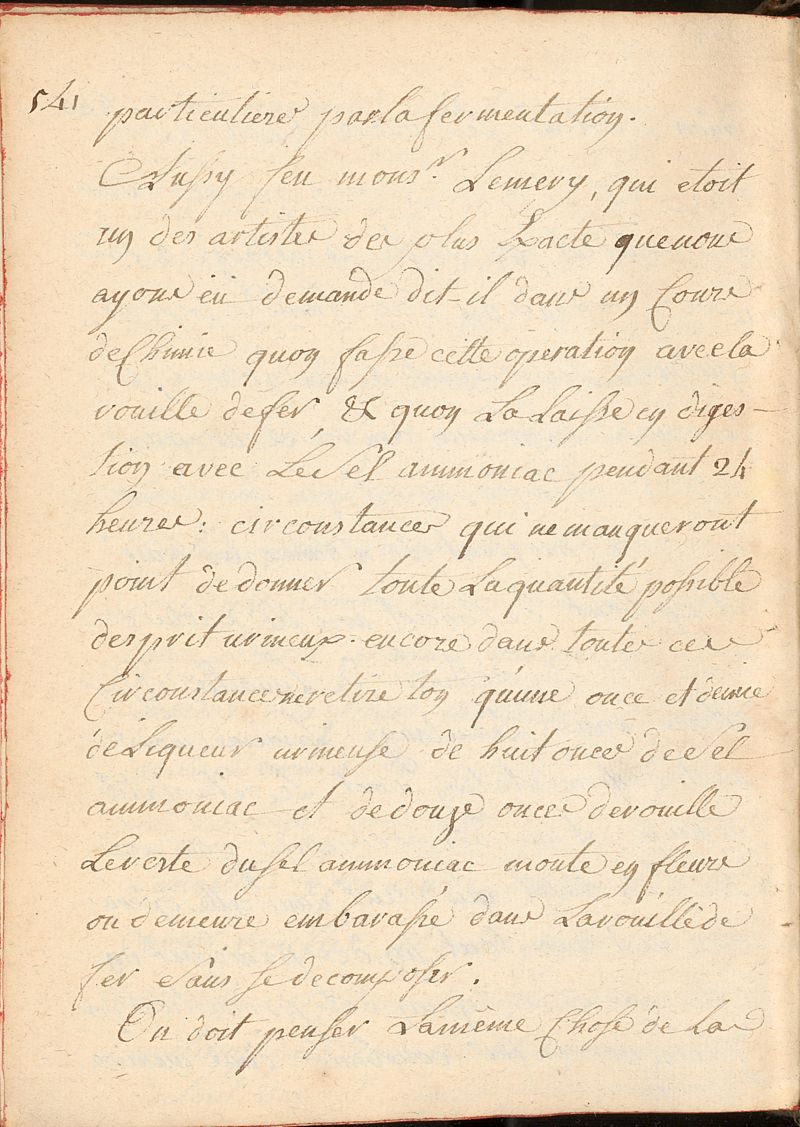 541 particuliere par la fermentation.
Aussy feu mons.r Lemery, qui etoit
un des artistes des plus Exacte que nous
ayons eü demande dit-il dans un Cours
de Chimie quon fasse cette operation avec la
rouille de fer, & quon La Laisse en diges-
tion avec Le Sel ammoniac pendant 24
heures: circonstances qui ne manqueront
point de donner toute La quantité possible
desprit urineux. encore dans toutes ces
Circonstances ne retire ton qu'une once et demie
de Liqueur urineuse de huit onces de Sel
ammoniac et de douze onces de rouille
Le reste du sel ammoniac monte en fleurs
ou demeure embarassé dans La roüille de
fer sans se decomposer.
On doit penser La même Chose de La